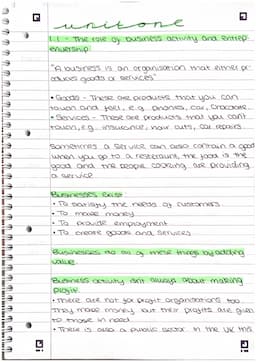 unit one
1.1 - The role of business activity and entrep-
enuership
"A business is an organisation that either pr-
oduces goods or services"
• Goods - These are products that you can
touch and feel, e.g. phones, car, chocolate.
• Services - These are products that you cant
touch, e.g. insurance, hair cuts, car repairs.
Sometimes a service can also contain a good
when you go to a restaurant, the food is the
good and the people cooking are providing
a service
Businesses Exist
• To satisfy the needs of customers
• To make money
• To provide employment
• To create goods and services
Businesses do all of these things by adding
value.
Business activity isn't always about making
profit.
• There are not for profit organisations too.
They make money but their profits are given
to those in need.
• There is also a public sector in the UK this